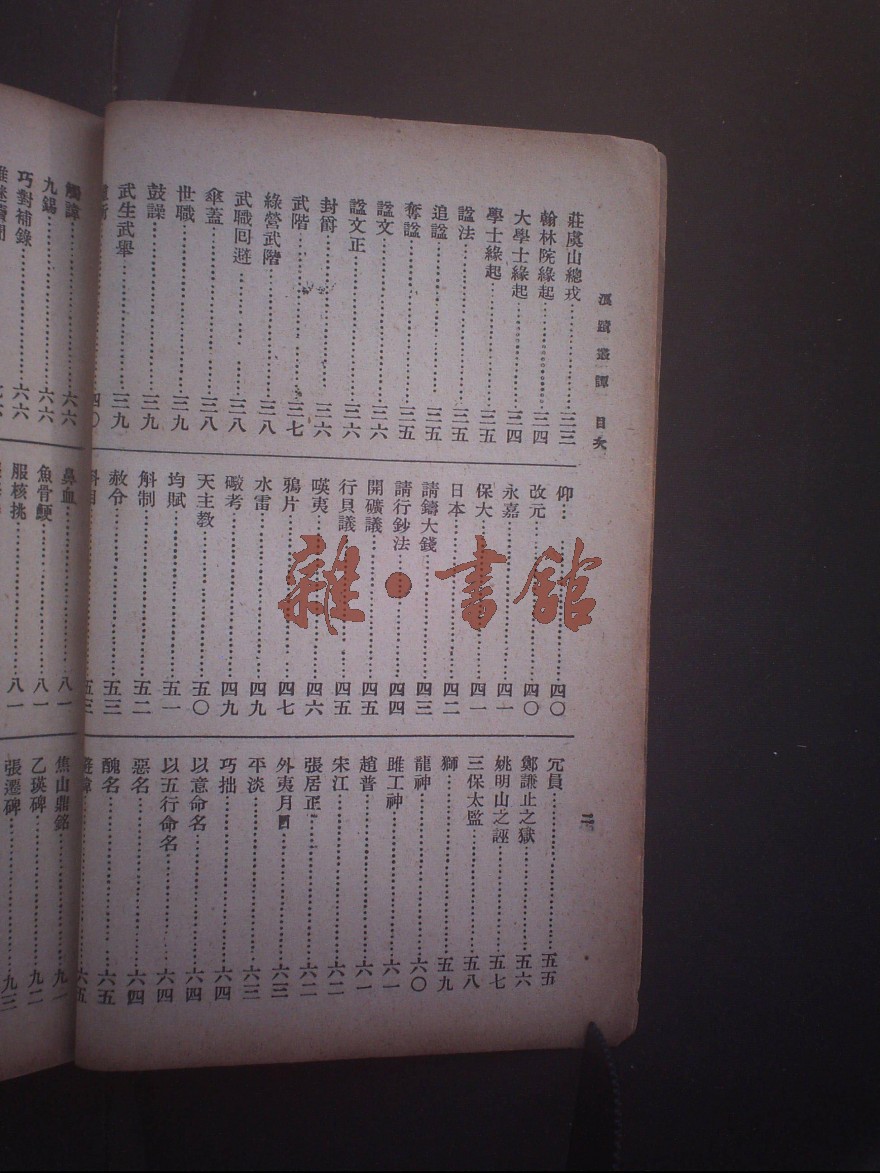 浪蹟叢譚 目次
莊虞山總戎 三三
翰林院緣起 三四
大學士緣起 三四
學士緣起 三五
諡法 三五
追諡 三五
奪諡 三五
諡文 三六
諡文正 三六
封爵 三六
武階 三七
綠營武階 三八
武職回避 三八
傘蓋 三八
世職 三九
鼓譟 三九
武生武舉 三九
四〇
仰 四〇
改元 四〇
永嘉 四一
保大 四一
日本 四二
請鑄大錢 四三
請行鈔法 四四
開礦議 四五
行貝議 四五
嘆夷 四六
鴉片 四七
水雷 四九
礮考 四九
天主教 五〇
均賦 五一
斛制 五二
赦令 五三
科目 五三
冗員 五五
鄭謙止之獄 五六
姚明山之誣 五七
三保太監 五八
獅 五九
龍神 六〇
雎工神 六一
趙普 六一
宋江 六二
張居正 六二
外夷月日 六三
平淡 六三
巧拙 六四
以意命名 六四
以五行命名 六四
惡名 六四
醜名 六五
避諱 六五
觸諱 六六
九錫 六六
巧對補錄 六六
鼻血 八一
魚骨鯁 八一
服核挑 八一
焦山鼎銘 九二
乙瑛碑 九二
張遷碑 九三
雜·書館